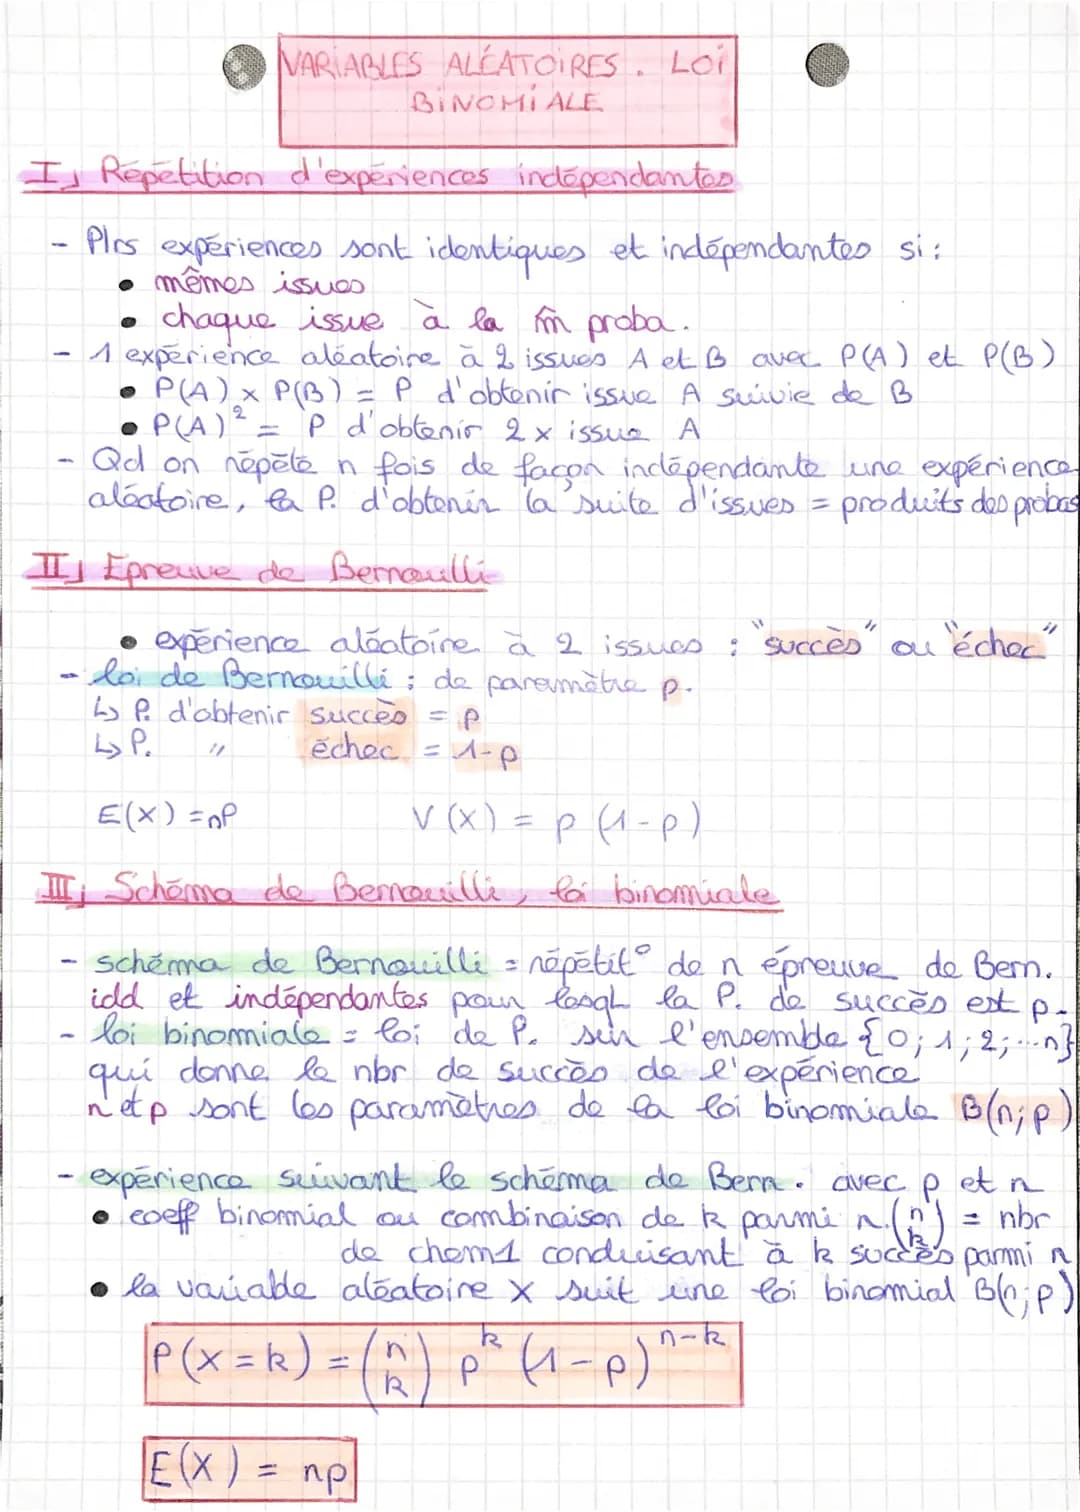 VARIABLES ALÉATOIRES. LOI
BINOMIALE
I, Répétition d'expériences indépendantes
- Plrs expériences sont identiques et indépendantes si :
• mêmes issues
• chaque issue à la m̂ proba.
- 1 expérience aléatoire à 2 issues A et B avec P(A) et P(B)
• P(A) x P(B) = P d'obtenir issue A suivie de B
• P(A)² = P d'obtenir 2x issue A
- Qd on répète n fois de façon indépendante une expérience
aléatoire, la P. d'obtenir la suite d'issues = produits des probas
II, Epreuve de Bernoulli
• expérience aléatoire à 2 issues : "succès" ou "échec"
- loi de Bernouilli ; de paramètre p.
↳ P. d'obtenir succès = p
↳ P. " échec = 1-p
E(X) = nP V(X) = p (1-p)
III, Schéma de Bernouilli, loi binomiale
- schéma de Bernouilli = répétit° de n épreuve de Bern.
idd et indépendantes pour lesql la P. de succès est p.
- loi binomiale = loi de P. sur l'ensemble {0; 1; 2; ...n}
qui donne le nbr de succès de l'expérience
n et p sont les paramètres de la loi binomiale B(n; p)
- expérience suivant le schéma de Bern. avec p et n
• coeff binomial ou combinaison de k parmi n. (n k) = nbr
de chem1 conduisant à k succès parmi n
• la variable aléatoire X suit une loi binomial B(n; p)
P(X = k) = (n k) p^k (1-p)^n-k
E(X) = np